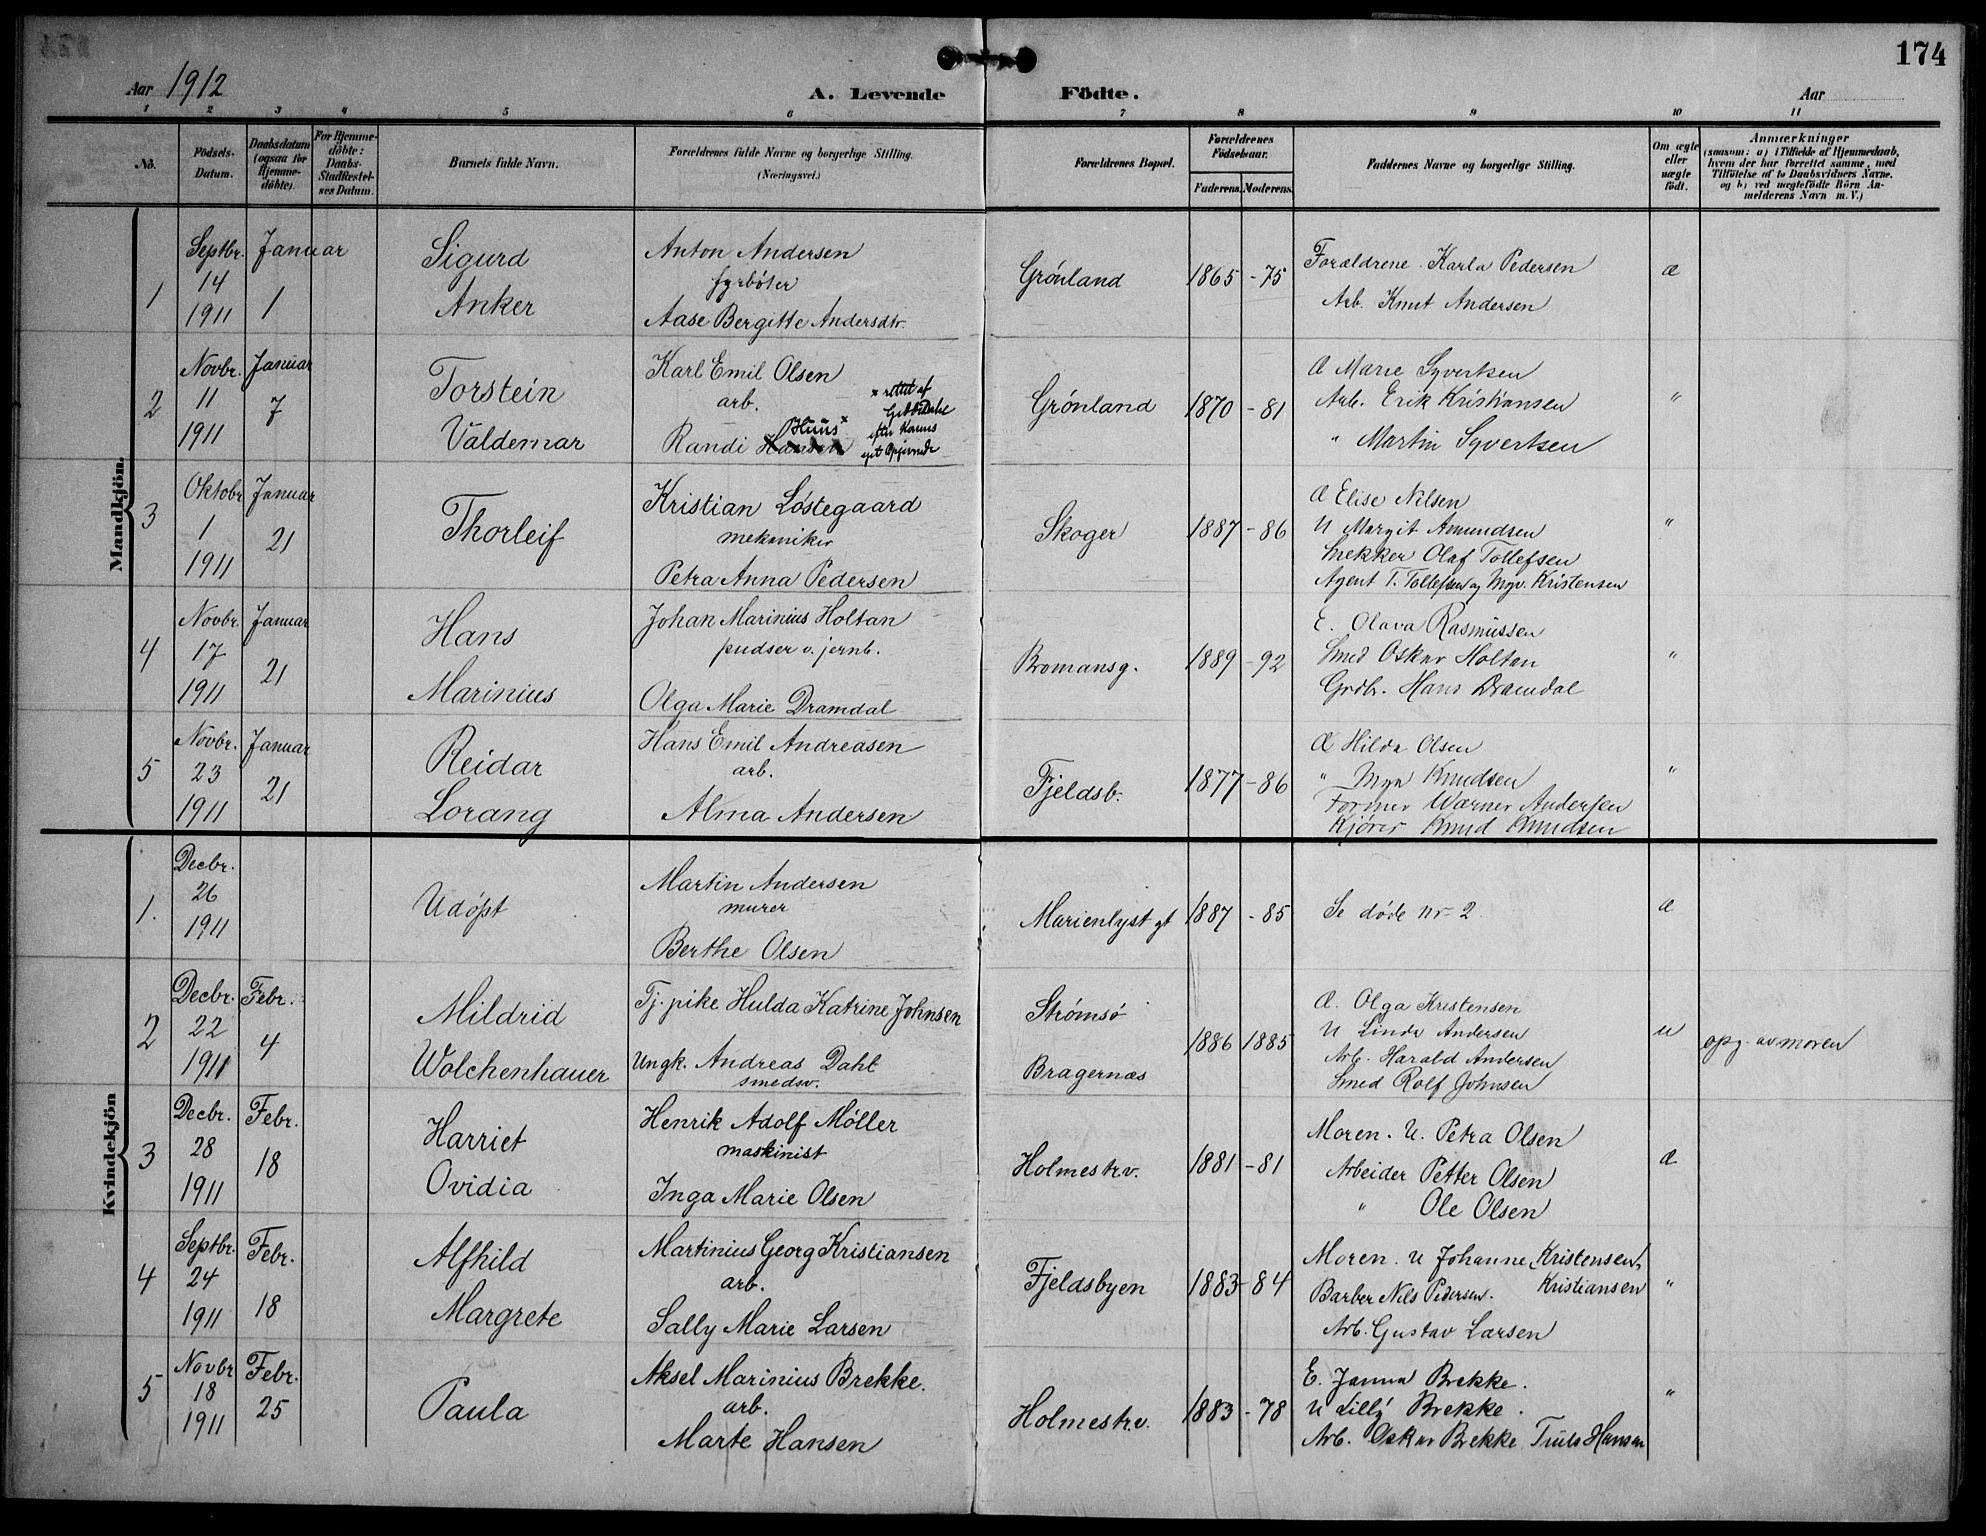 174
Aar 1912
A. Levende Födte.
Aar
1 2 3 4 5 6 7 8 9 10 11
No.
Födsels-Datum.
Daabsdatum (ogsaa for Hjemme-döbte).
For Hjemme-döbte: Daabs-Stadfæstel-ses Datum.
Barnets fulde Navn.
Forældrenes fulde Navne og borgerlige Stilling.
(Næringsvei.)
Forældrenes Bopæl.
Forældrenes Födselsaar.
Faderens. Moderens.
Faddernes Navne og borgerlige Stilling.
Om ægte eller uægte födt.
Anmærkninger
(saasom: a) i Tilfælde af Hjemmedaab,
hvem der har forrettet samme, med
Tilføielse af to Daabsvidners Navne.
og b) ved uægtefödte Börn An-
melderens Navn m. V.)
Mandkjön.
1
Septbr. 14 1911
Januar 1
Sigurd
Anker
Anton Andersen
fyrbøter
Aase Bergitte Andersdtr.
Grønland
1865 - 75
Forældrene. Karla Pedersen
Arb. Knut Andersen
æ
2
Novbr. 11 1911
Januar 7
Torstein
Valdemar
Karl Emil Olsen
arb.
Randi Hansen Huus x
x rettet af
efter Konens
Grønland
1870 - 81
Æ Marie Syvertsen
Arb. Erik Kristiansen
" Martin Syvertsen
"
3
Oktobr 1 1911
Januar 21
Thorleif
Kristian Løstegaard
mekaniker
Petra Anna Pedersen
Skoger
1887 - 86
Æ Elise Nilsen
U Margit Amundsen
Snekker Olaf Tollefsen
Agent T. Tollefsen og Myv. Kristensen
"
4
Novbr. 17 1911
Januar 21
Hans
Marinius
Johan Marinius Holtan
pudser v. jernb.
Olga Marie Dramdal
Bromansg.
1889 - 92
E. Olava Rasmussen
Smed Oskar Holtan
Grdbr. Hans Dramdal
"
5
Novbr. 23 1911
Januar 21
Reidar
Lorang
Hans Emil Andreasen
arb.
Alma Andersen
Fjeldsb.
1877 - 86
Æ Hilda Olsen
" Mya Knudsen
Former Warner Andersen
Kjører Knud Knudsen
"
Kvindekjön
1.
Decbr. 26 1911
Udøpt
Martin Andersen
murer
Berthe Olsen
Marienlyst gt
1887 - 85
Se døde nr 2
æ
2
Decbr. 22 1911
Febr. 4
Mildrid
Wolchenhauer
Tj. pike Hulda Katrine Johnsen
Ungk. Andreas Dahl
smedsv.
Strømsø
Bragernæs
1886 1885
Æ. Olga Kristensen
U Linda Andersen
Arb. Harald Andersen
Smed Rolf Johnsen
u
opg. av moren
3
Decbr. 28 1911
Febr. 18
Harriet
Ovidia
Henrik Adolf Møller
maskinist
Inga Marie Olsen
Holmestrv.
1881 - 81
Moren. U. Petra Olsen
Arbeider Petter Olsen
" Ole Olsen
æ
4
Septbr. 24 1911
Febr. 18
Alfhild
Margrete
Martinius Georg Kristiansen
arb.
Sally Marie Larsen
Fjeldsbyen
1883 - 84
Moren. U Johanne Kristensen,
Barber Nils Pedersen. Kristiansen
Arb. Gustav Larsen
"
5
Novbr 18 1911
Febr. 25
Paula
Aksel Marinius Brekke.
arb.
Marte Hansen
Holmestr.v.
1883 - 78
E. Janna Brekke.
U Lilly Brekke.
Arb. Oskar Brekke Truls Hansen
"